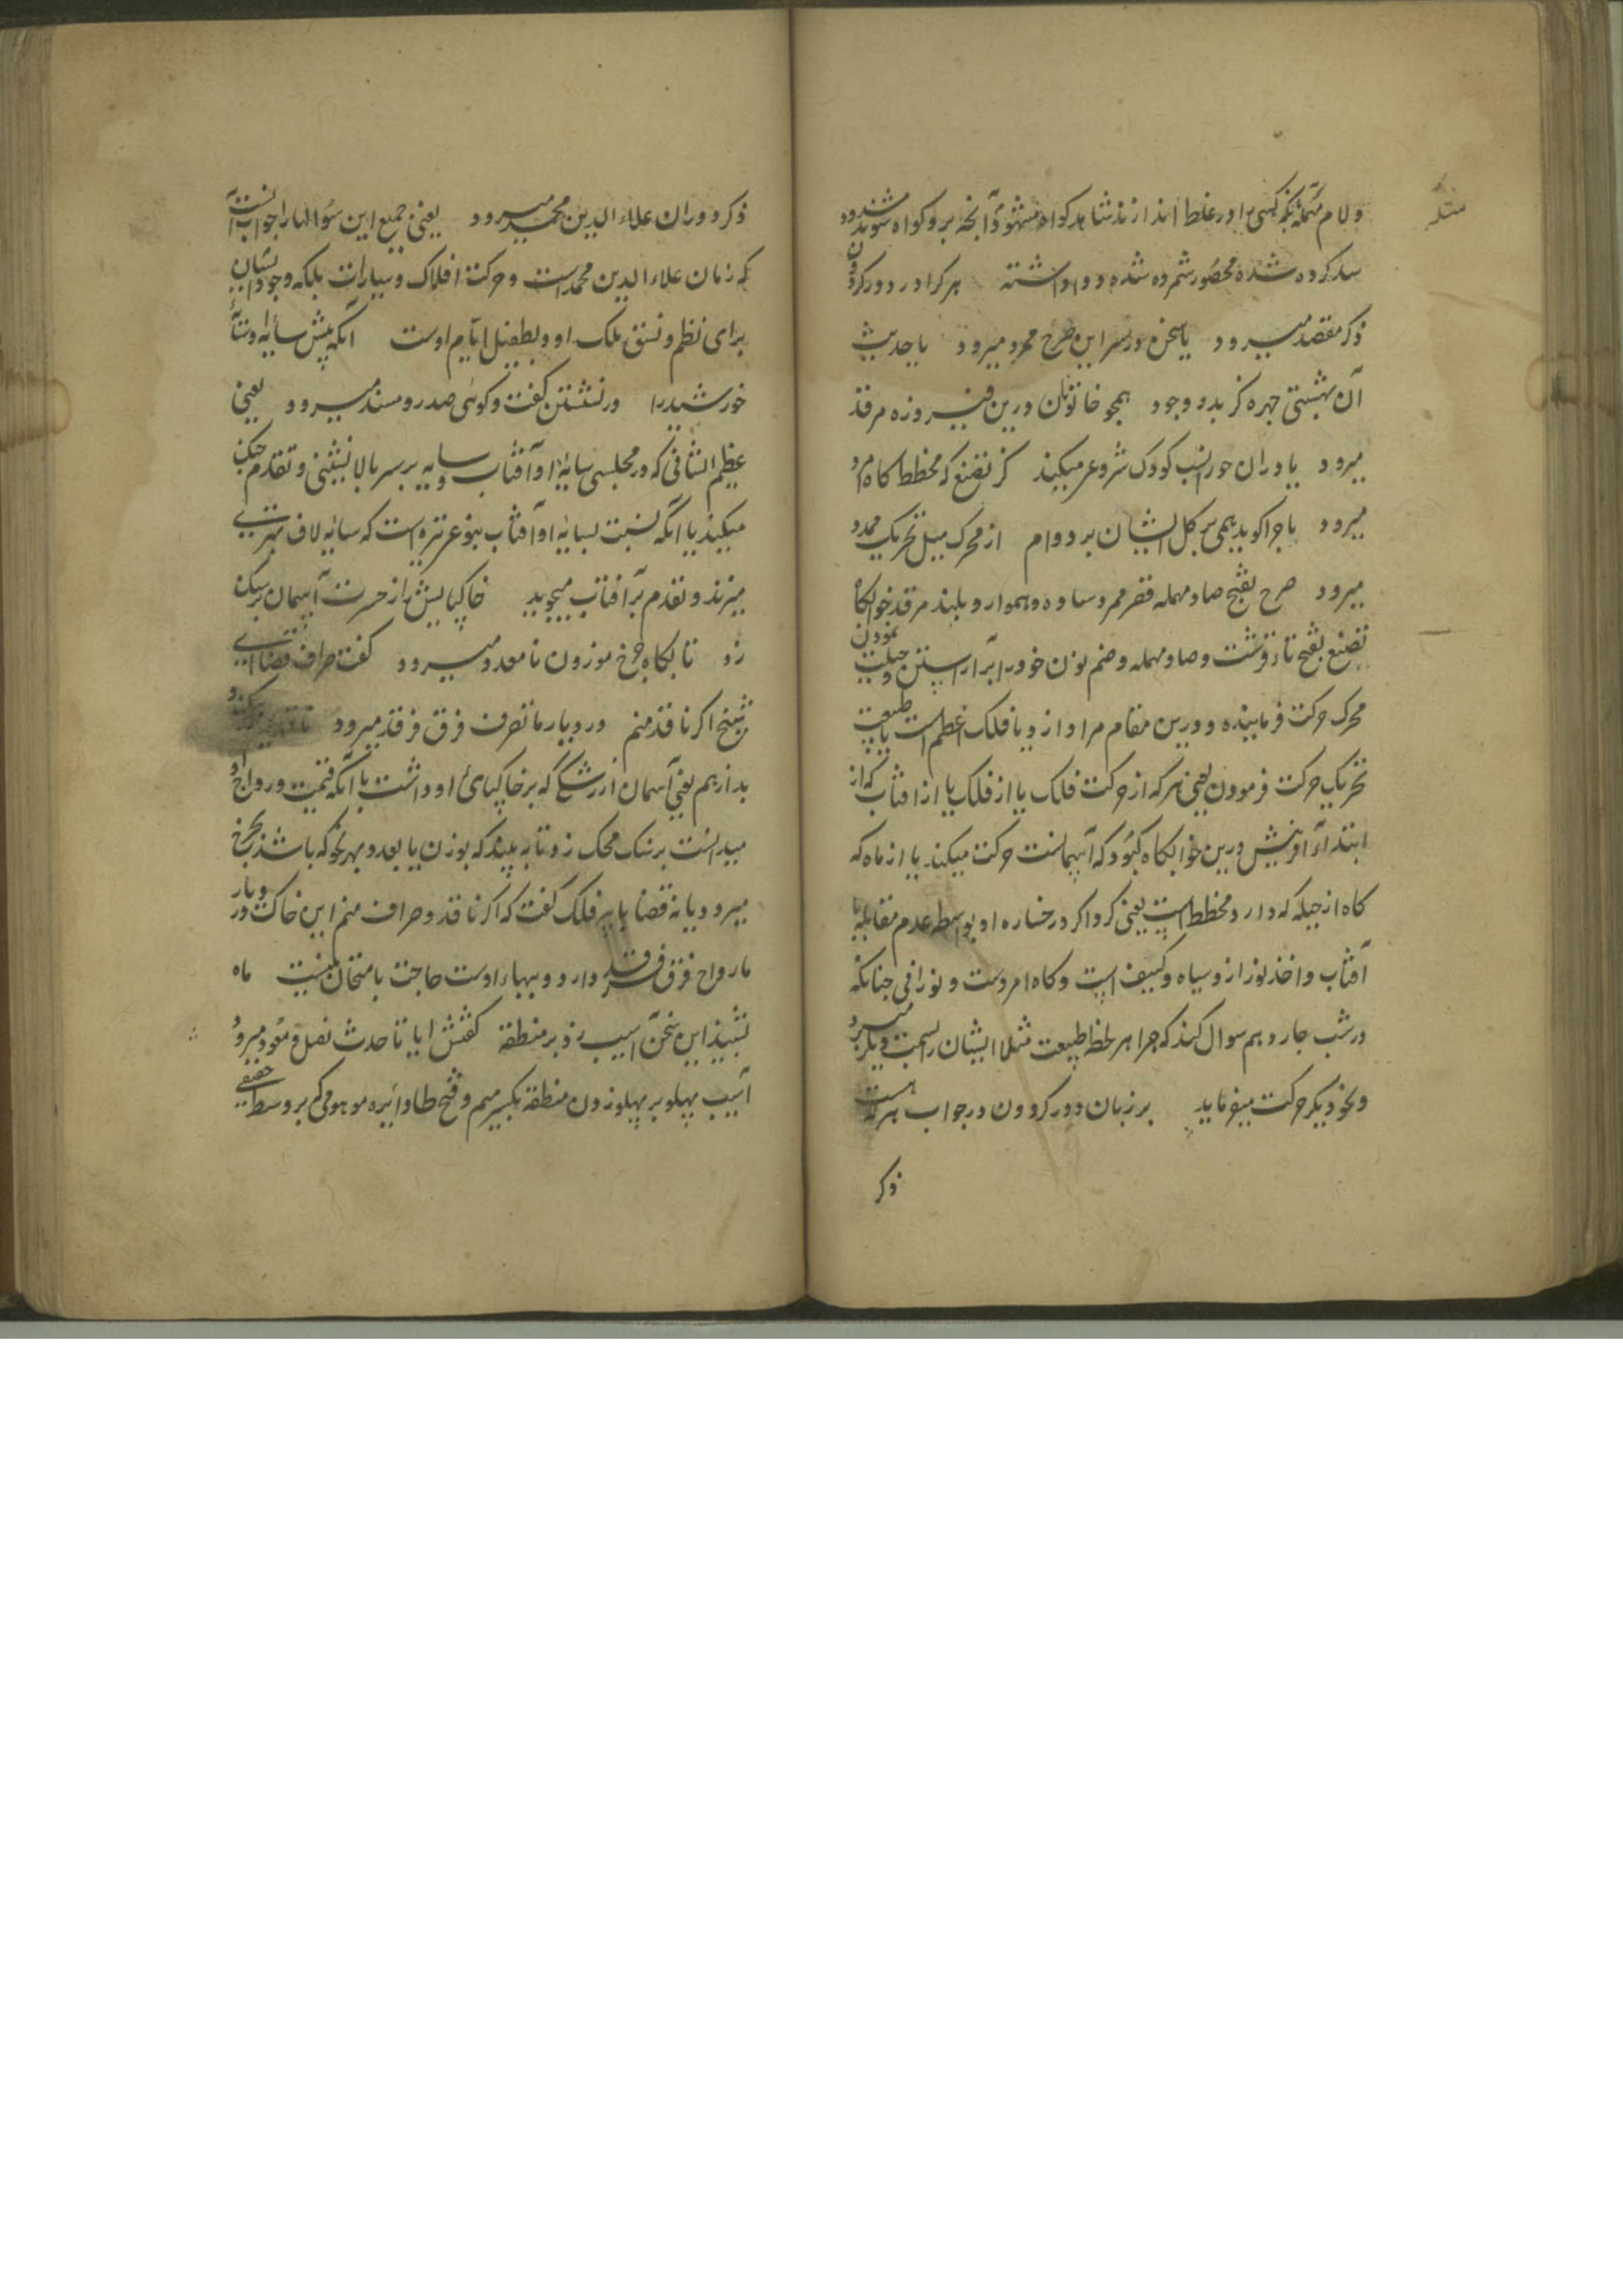 ولام مهمله نکه کسی را در غلط اندازند شاهد گواه مشهود آنچه برو گواه شوند
سد کرده شده محصور شمرده شده و واداشته هر کرا در دور کردون
ذکر مقصد میرود یا سخن در سر این صرح ممرد میرود یا حدیث
آن بهشتی چهره کز بدو وجود همچو خاتونان درین فیروزه مرقد
میرود یا دران حورانسب کودک شروعی میکند کز تصنع که مخطط گاه امرد
میرود یا چرا گوید همی بر کل ایشان بر دوام از محرک میل تحریک مجدد
میرود صرح بفتح صاد مهمله قصر ممرد ساده و هموار و بلند مرقد خوابگاه
تصنع بفتح تاء قرشت و صاد مهمله و ضم نون خود را برآراستن و حیلت نمودن
محرک حرکت فرماینده و درین مقام مراد ازو یا فلک اعظم است یا طبیعت
تحریک حرکت فرمودن یعنی هر که از حرکت فلک یا از فلک یا از افتاب که از
ابتداء آفرینش درین خوابگاه کبود که آسمانست حرکت میکند یا از ماه که
گاه از حیله که دارد مخطط است یعنی گرداگرد رخساره او بواسطه عدم مقابله با
آفتاب و اخذ نور ازو سیاه و کثیف است و گاه امردست و نورانی چنانکه
در شب چاردهم سوال کند که چرا هر لحظه طبیعت مثلا ایشان را بسمت دیگر میبرد
و نحو دیگر حرکت میفرماید بر زبان دور کردون در جواب هر که هست
ذکر
ذکر دوران علاء الدین محمد میرود یعنی جمیع این سؤالها را جواب آنست
که زمان علاء الدین محمد است و حرکت افلاک و سیارات بلکه وجود ایشان
برای نظم و نسق ملک او و بطفیل ایام اوست آنکه پیش سایه او سایه
خورشید را در نشستن گفت و گوی صدر و مسند میرود یعنی
عظیم الشانی که در مجلسی سایه او آفتاب و سایه بر سر بالا نشینی و تقدم جنگ
میکند یا آنکه نسبت بسایه او آفتاب بنوعی تیره است که سایه لاف بهتری
میزند و تقدم بر آفتاب میجوید خاکپایش را ز حسرت آسمان بر سنگ
زد تا بگاه چرخ موزون نا معدود میرود گفت صراف قضا ای
شیخ اگر ناقد منم در دیار ما تصرف فرق فرقد میرود
بدازیم یعنی آسمان از رشک که بر خاکپای او داشت با آنکه قیمت و رواج او
میدانست بر سنگ محک زد تا به بیند که بوزن یا بعد و بهر نحو که باشد بخرج
میرود یا نه قضا با پیر فلک گفت که اگر ناقد و صراف منم این خاک در دیار
ما رواج فرق فرقد دارد و ببهاء اوست حاجت بامتحان نیست ماه
بشنید این سخن آسیب زد بر منطقه گفتش ایا تا حدث نعل و مقود میرود
آسیب پهلو بر پهلو زدن منطقه بکسر میم و فتح طا دائره موهومی که بر وسط حقیقی